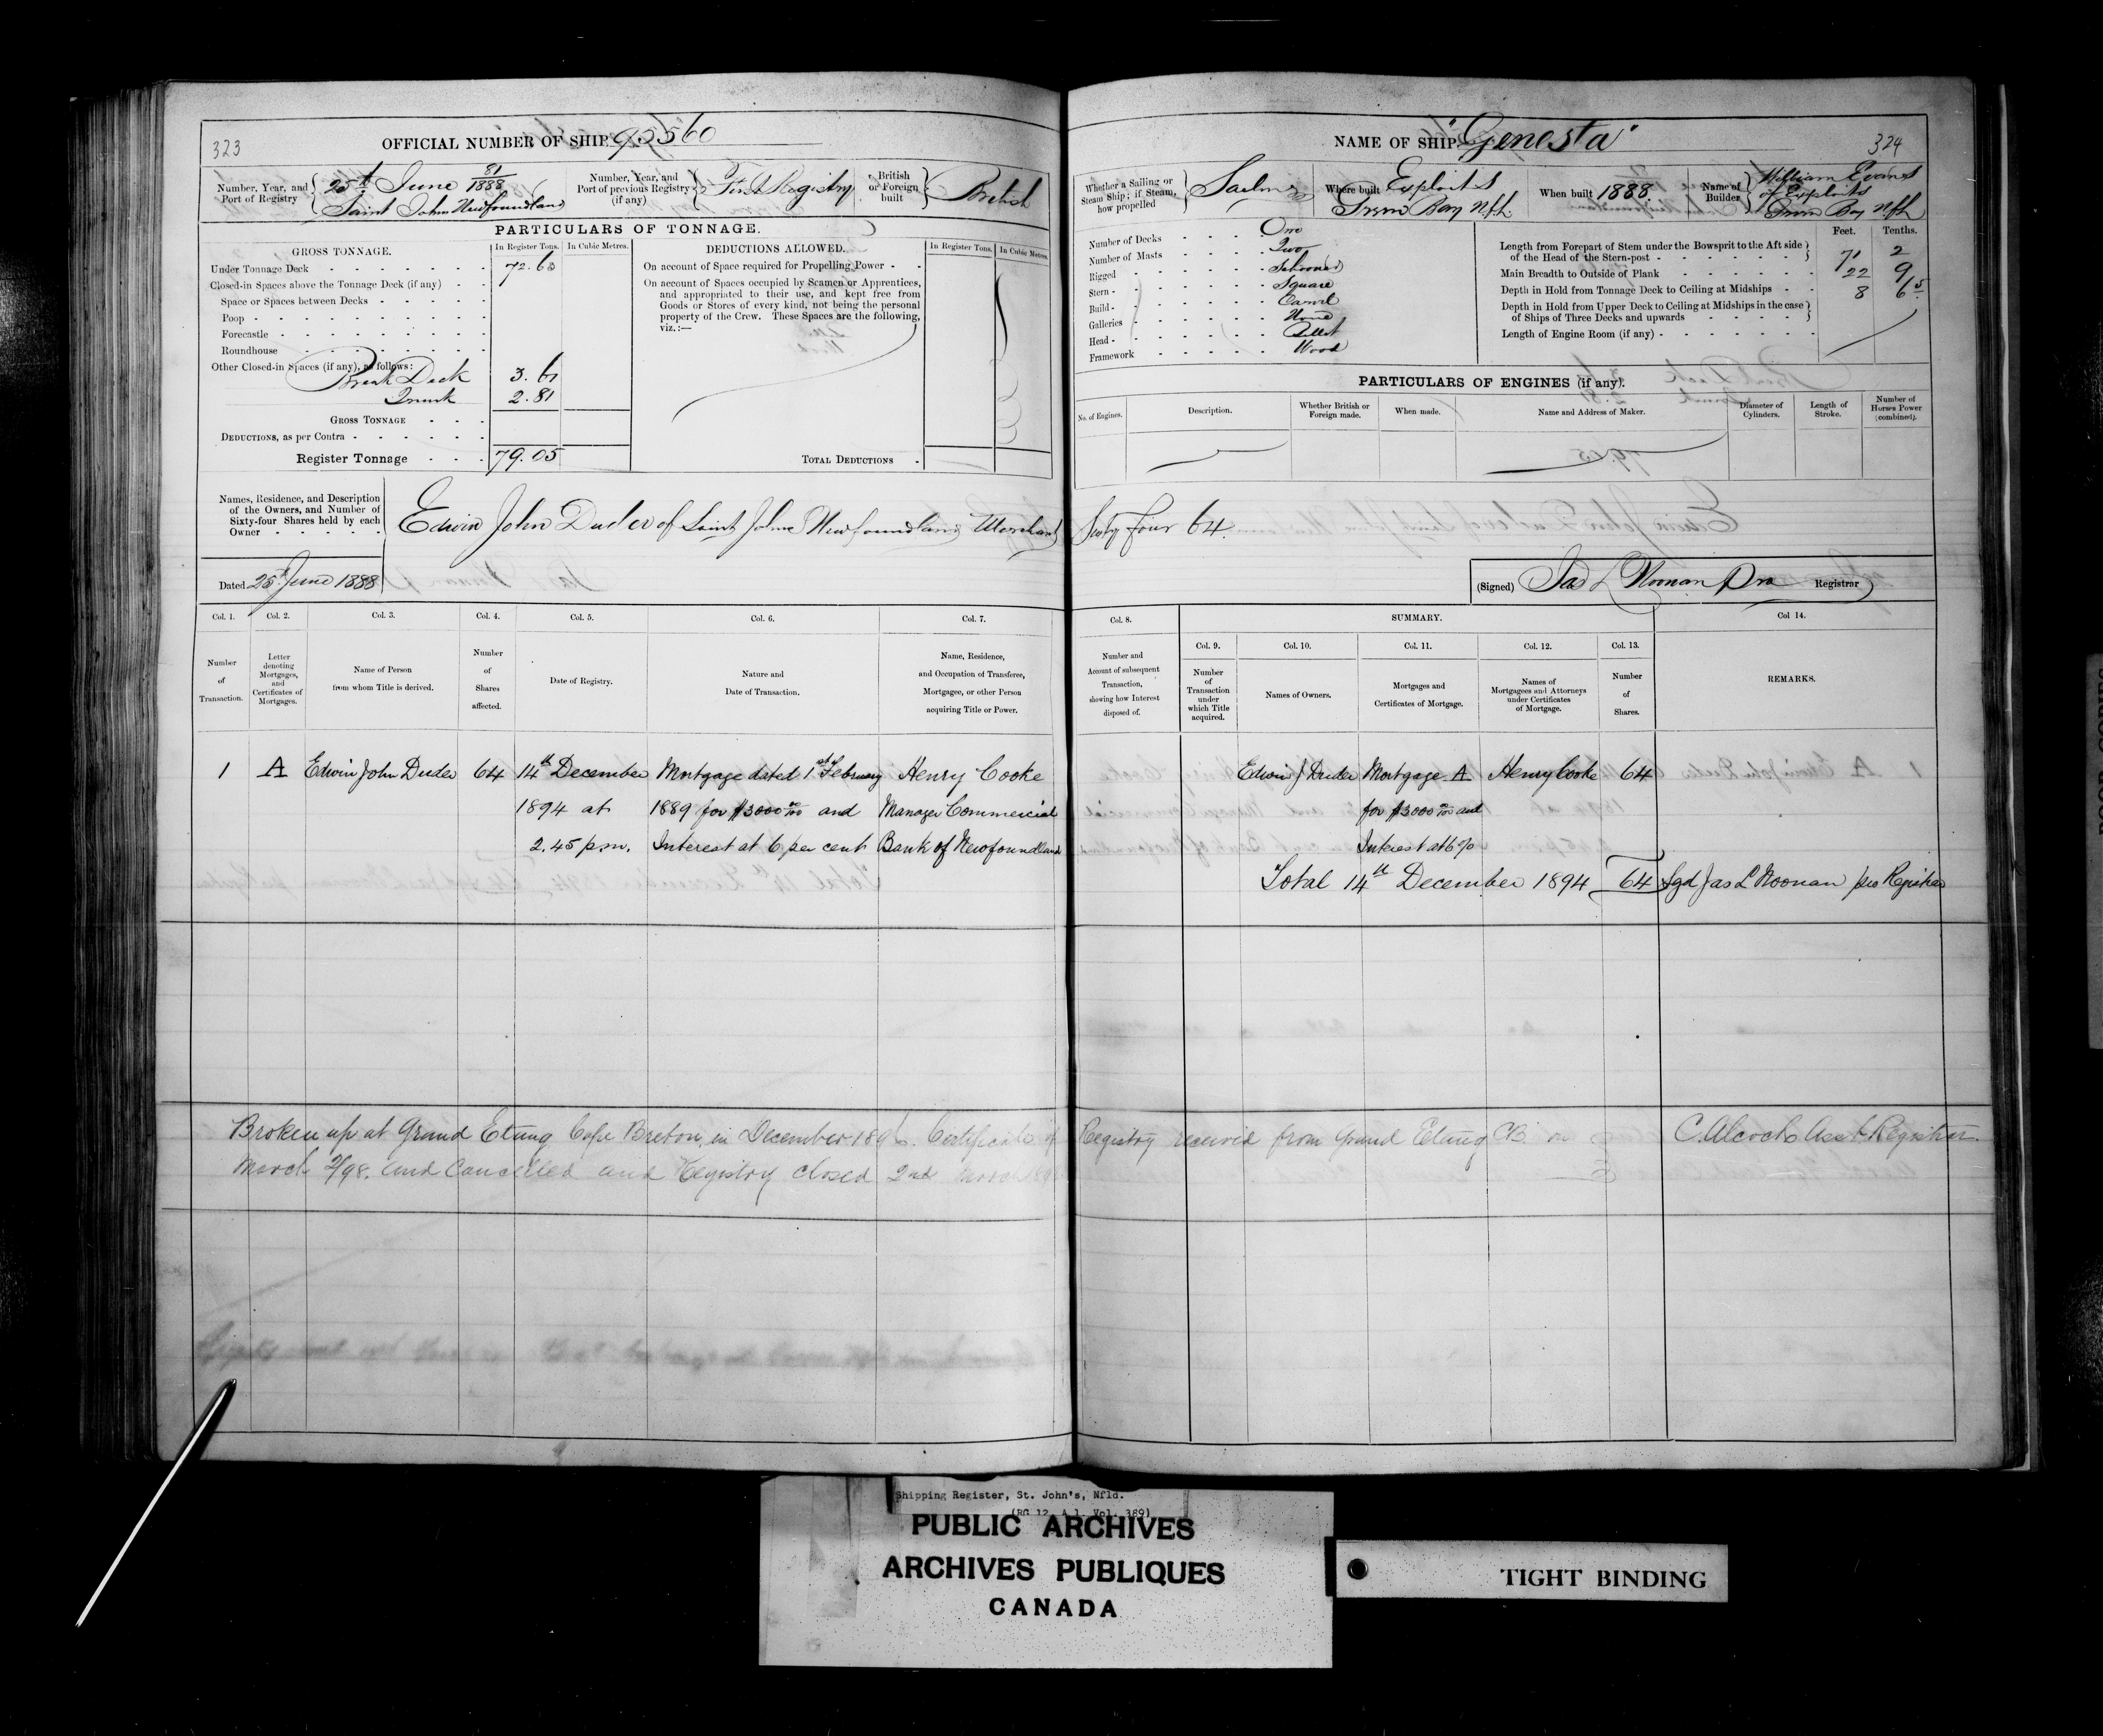 323
OFFICIAL NUMBER OF SHIP 95560
Number, Year, and Port of Registry
25th June 81/1888
Saint John Newfoundland
Number, Year, and Port of previous Registry (if any)
First Registry
British or Foreign built
British
PARTICULARS OF TONNAGE.
GROSS TONNAGE.
In Register Tons.
In Cubic Metres.
Under Tonnage Deck 72.63
Closed-in Spaces above the Tonnage Deck (if any)
Space or Spaces between Decks
Poop
Forecastle
Roundhouse
Other Closed-in Spaces (if any), as follows:
Break Deck 3.61
Trunk 2.81
GROSS TONNAGE
DEDUCTIONS, as per Contra
Register Tonnage 79.05
DEDUCTIONS ALLOWED.
In Register Tons.
In Cubic Metres.
On account of Space required for Propelling Power
On account of Spaces occupied by Seamen or Apprentices,
and appropriated to their use, and kept free from
Goods or Stores of every kind, not being the personal
property of the Crew. These Spaces are the following,
viz.:—
TOTAL DEDUCTIONS
Names, Residence, and Description
of the Owners, and Number of
Sixty-four Shares held by each
Owner
Edwin John Duder of Saint Johns Newfoundland Merchant
Dated 25th June 1888
Col. 1. Col. 2. Col. 3. Col. 4. Col. 5. Col. 6. Col. 7.
Number of Transaction.
Letter denoting Mortgages, and Certificates of Mortgages.
Name of Person from whom Title is derived.
Number of Shares affected.
Date of Registry.
Nature and Date of Transaction.
Name, Residence, and Occupation of Transferee, Mortgagee, or other Person acquiring Title or Power.
1 A Edwin John Duder 64 14th December Mortgage dated 1st February Henry Cooke
1894 at 1889 for $3000 00/100 and Manager Commercial
2.45 p.m. Interest at 6 per cent Bank of Newfoundland
Broken up at Grand Etang Cape Breton, in December 1896. Certificate of
March 2/98. and Cancelled and Registry closed 2nd March 1898
NAME OF SHIP "Genesta"
324
Whether a Sailing or Steam Ship; if Steam, how propelled
Sailing
Where built
Exploits
Green Bay Nfld
When built 1888.
Name of Builder
William Evans
of Exploits
Green Bay Nfld
Number of Decks One
Number of Masts Two
Rigged Schooner
Stern Square
Build Carvel
Galleries None
Head Billet
Framework Wood
Feet. Tenths.
Length from Forepart of Stem under the Bowsprit to the Aft side
of the Head of the Stern-post 71 2
Main Breadth to Outside of Plank 22 9
Depth in Hold from Tonnage Deck to Ceiling at Midships 8 65
Depth in Hold from Upper Deck to Ceiling at Midships in the case
of Ships of Three Decks and upwards
Length of Engine Room (if any)
PARTICULARS OF ENGINES (if any).
No. of Engines.
Description.
Whether British or Foreign made.
When made.
Name and Address of Maker.
Diameter of Cylinders.
Length of Stroke.
Number of Horses Power (combined).
Sixty four 64.
(Signed) Jas L Noonan Pro Registrar
Col. 8.
SUMMARY.
Col 14.
Col. 9. Col. 10. Col. 11. Col. 12. Col. 13.
Number and Account of subsequent Transaction, showing how Interest disposed of.
Number of Transaction under which Title acquired.
Names of Owners.
Mortgages and Certificates of Mortgage.
Names of Mortgagees and Attorneys under Certificates of Mortgage.
Number of Shares.
REMARKS.
Edwin J Duder Mortgage A Henry Cooke 64
for $3000 00/100 and
Interest at 6%
Total 14th December 1894 64 Sgd Jas L Noonan pro Registrar
Registry received from Grand Etang CB. on C. Alcock Asst Registrar
Shipping Register, St. John's, Nfld.
(RG 12, A 1, Vol. 389)
PUBLIC ARCHIVES
ARCHIVES PUBLIQUES
CANADA
TIGHT BINDING